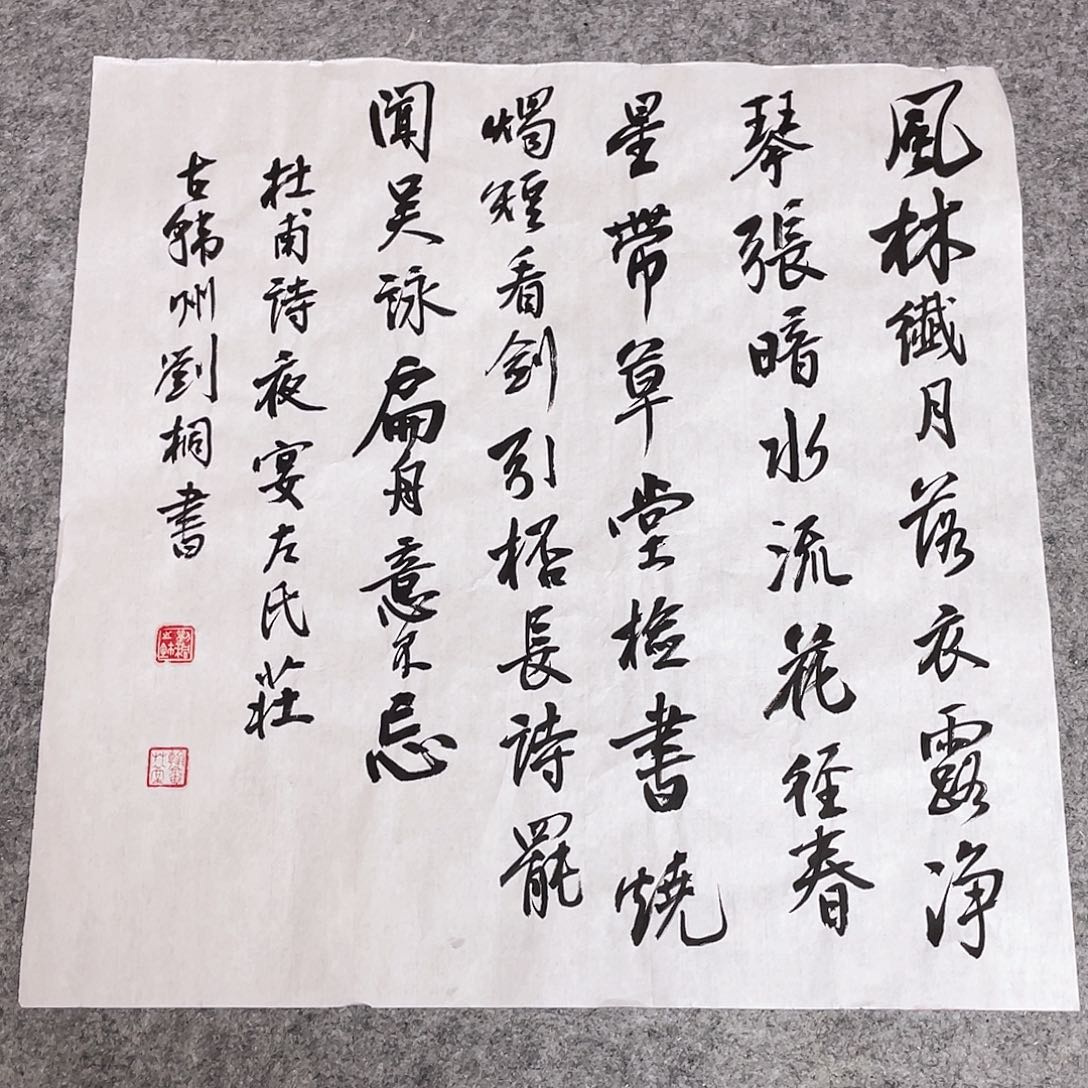 風林纖月落衣露净
琴張暗水流花径春
星帶草堂檢書燒
燭短看劍引桮長詩罷
聞吴詠扁舟意不忘
杜甫詩夜宴左氏莊
古韩州劉桐書